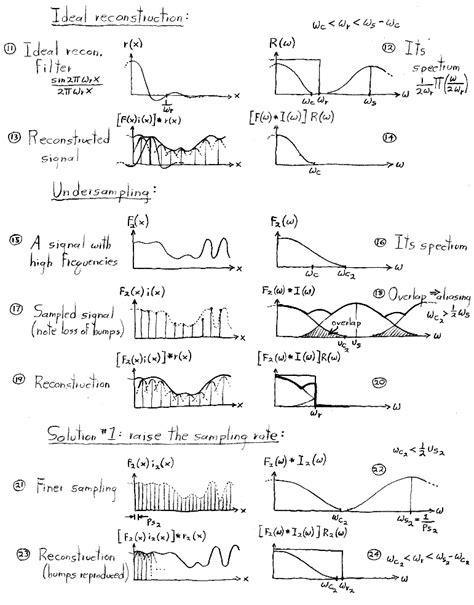 Ideal reconstruction:
ω_c < ω_r < ω_s - ω_c
⑪ Ideal recon. filter
sin 2πω_r x / 2πω_r x
r(x)
1/ω_r
x
R(ω)
ω_c ω_r ω_s ω
⑫ Its spectrum
1/2ω_r Π(ω/2ω_r)
⑬ Reconstructed signal
[f(x)i(x)]*r(x)
x
[F(ω)*I(ω)]R(ω)
ω_c ω
⑭
Undersampling:
⑮ A signal with high frequencies
F₂(x)
x
F₂(ω)
ω_c ω_c₂ ω
⑯ Its spectrum
⑰ Sampled signal (note loss of humps)
F₂(x)i(x)
x
F₂(ω)*I(ω)
overlap
υ_c₂ υ_s ω
⑱ Overlap ⇒ aliasing
ω_c₂ > ½ω_s
⑲ Reconstruction
[F₂(x)i(x)]*r(x)
x
[F₂(ω)*I(ω)]R(ω)
ω_r ω
⑳
Solution #1: raise the sampling rate:
ω_c₂ < ½ υ_s₂
㉑ Finer sampling
F₂(x)i₂(x)
Ps₂
x
F₂(ω)*I₂(ω)
ω_c₂ ω_s₂ = 1/Ps₂ ω
㉒
㉓ Reconstruction (humps reproduced)
[F₂(x)i₂(x)]*r₂(x)
x
[F₂(ω)*I₂(ω)]R₂(ω)
ω_c₂ ω_r₂ ω
㉔ ω_c₂ < ω_r₂ < ω_s₂ - ω_c₂